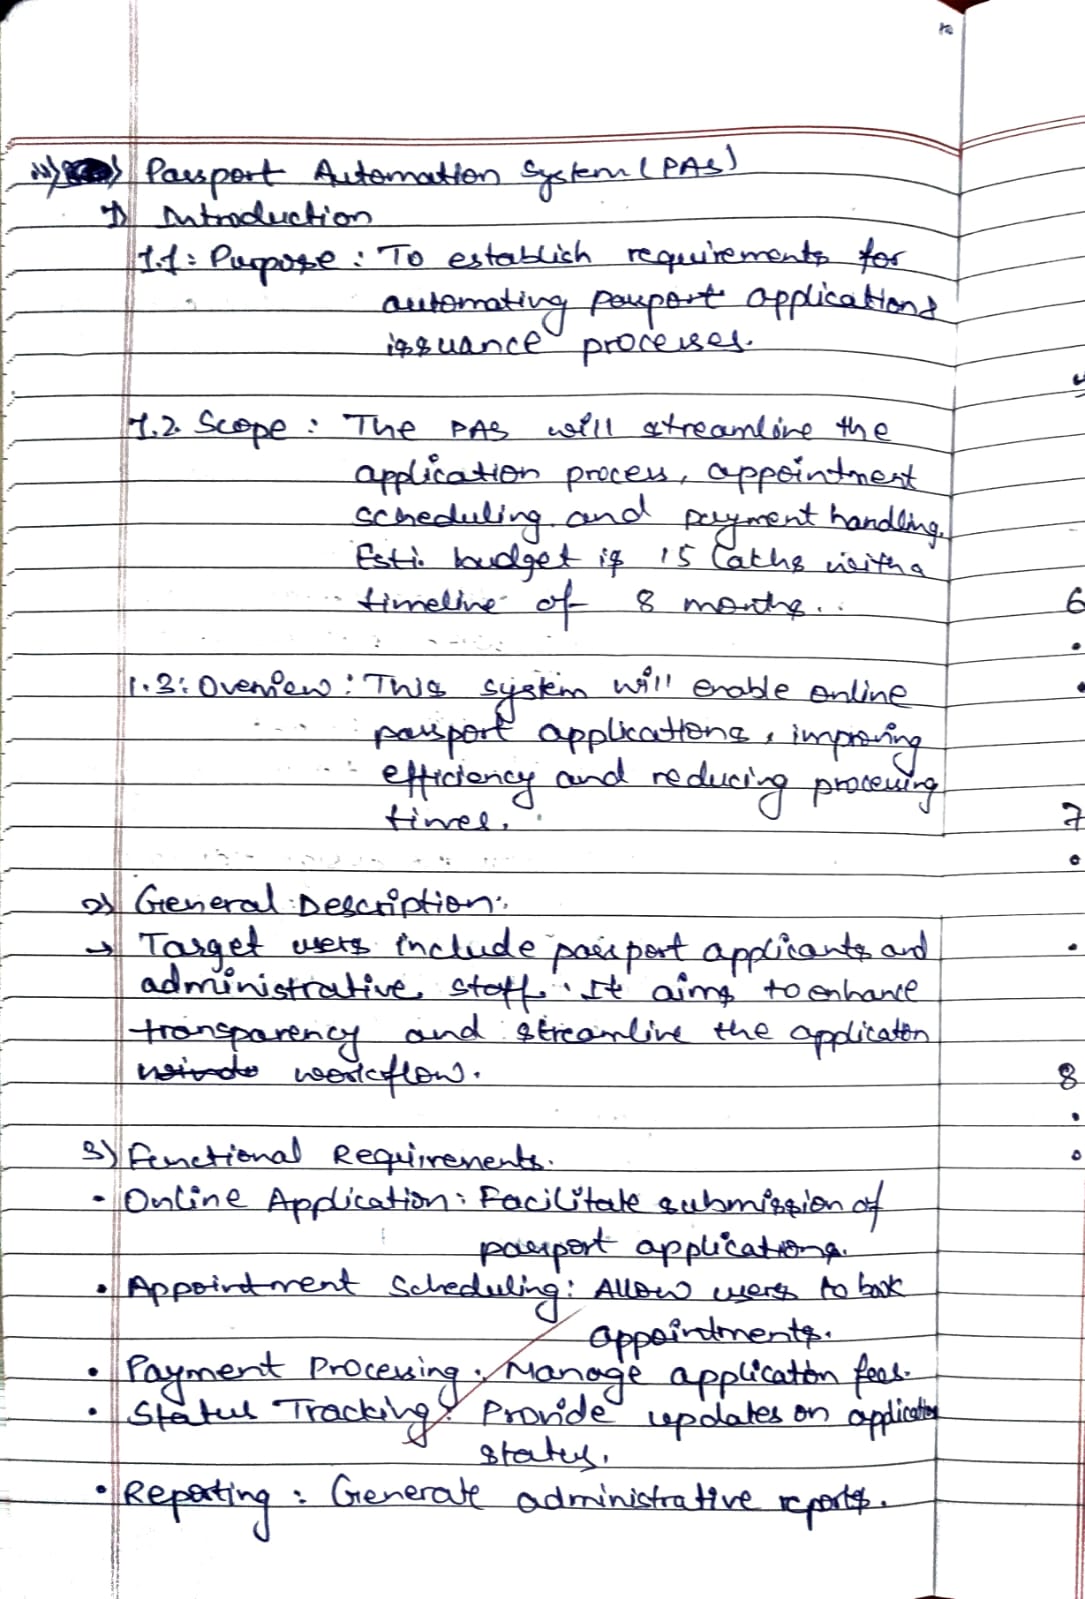 iv) Passport Automation System (PAS)
1) Introduction
1.1: Purpose : To establish requirements for
automating passport applications
issuance processes.
1.2. Scope : The PAS will streamline the
application process, appointment
scheduling and payment handling.
Esti. budget is 15 laths with a
timeline of 8 months.
1.3: Overview : This system will enable online
passport applications, improving
efficiency and reducing processing
times.
2) General Description:
→ Target users include passport applicants and
administrative staff. It aims to enhance
transparency and streamline the applicaton
workflow.
3) Functional Requirements.
• Online Application : Facilitate submission of
passport applications.
• Appointment Scheduling : Allow users to book
appointments.
• Payment Processing : Manage applicaton fees.
• Status Tracking : Provide updates on application
status.
• Reporting : Generate administrative reports.
6
7
8